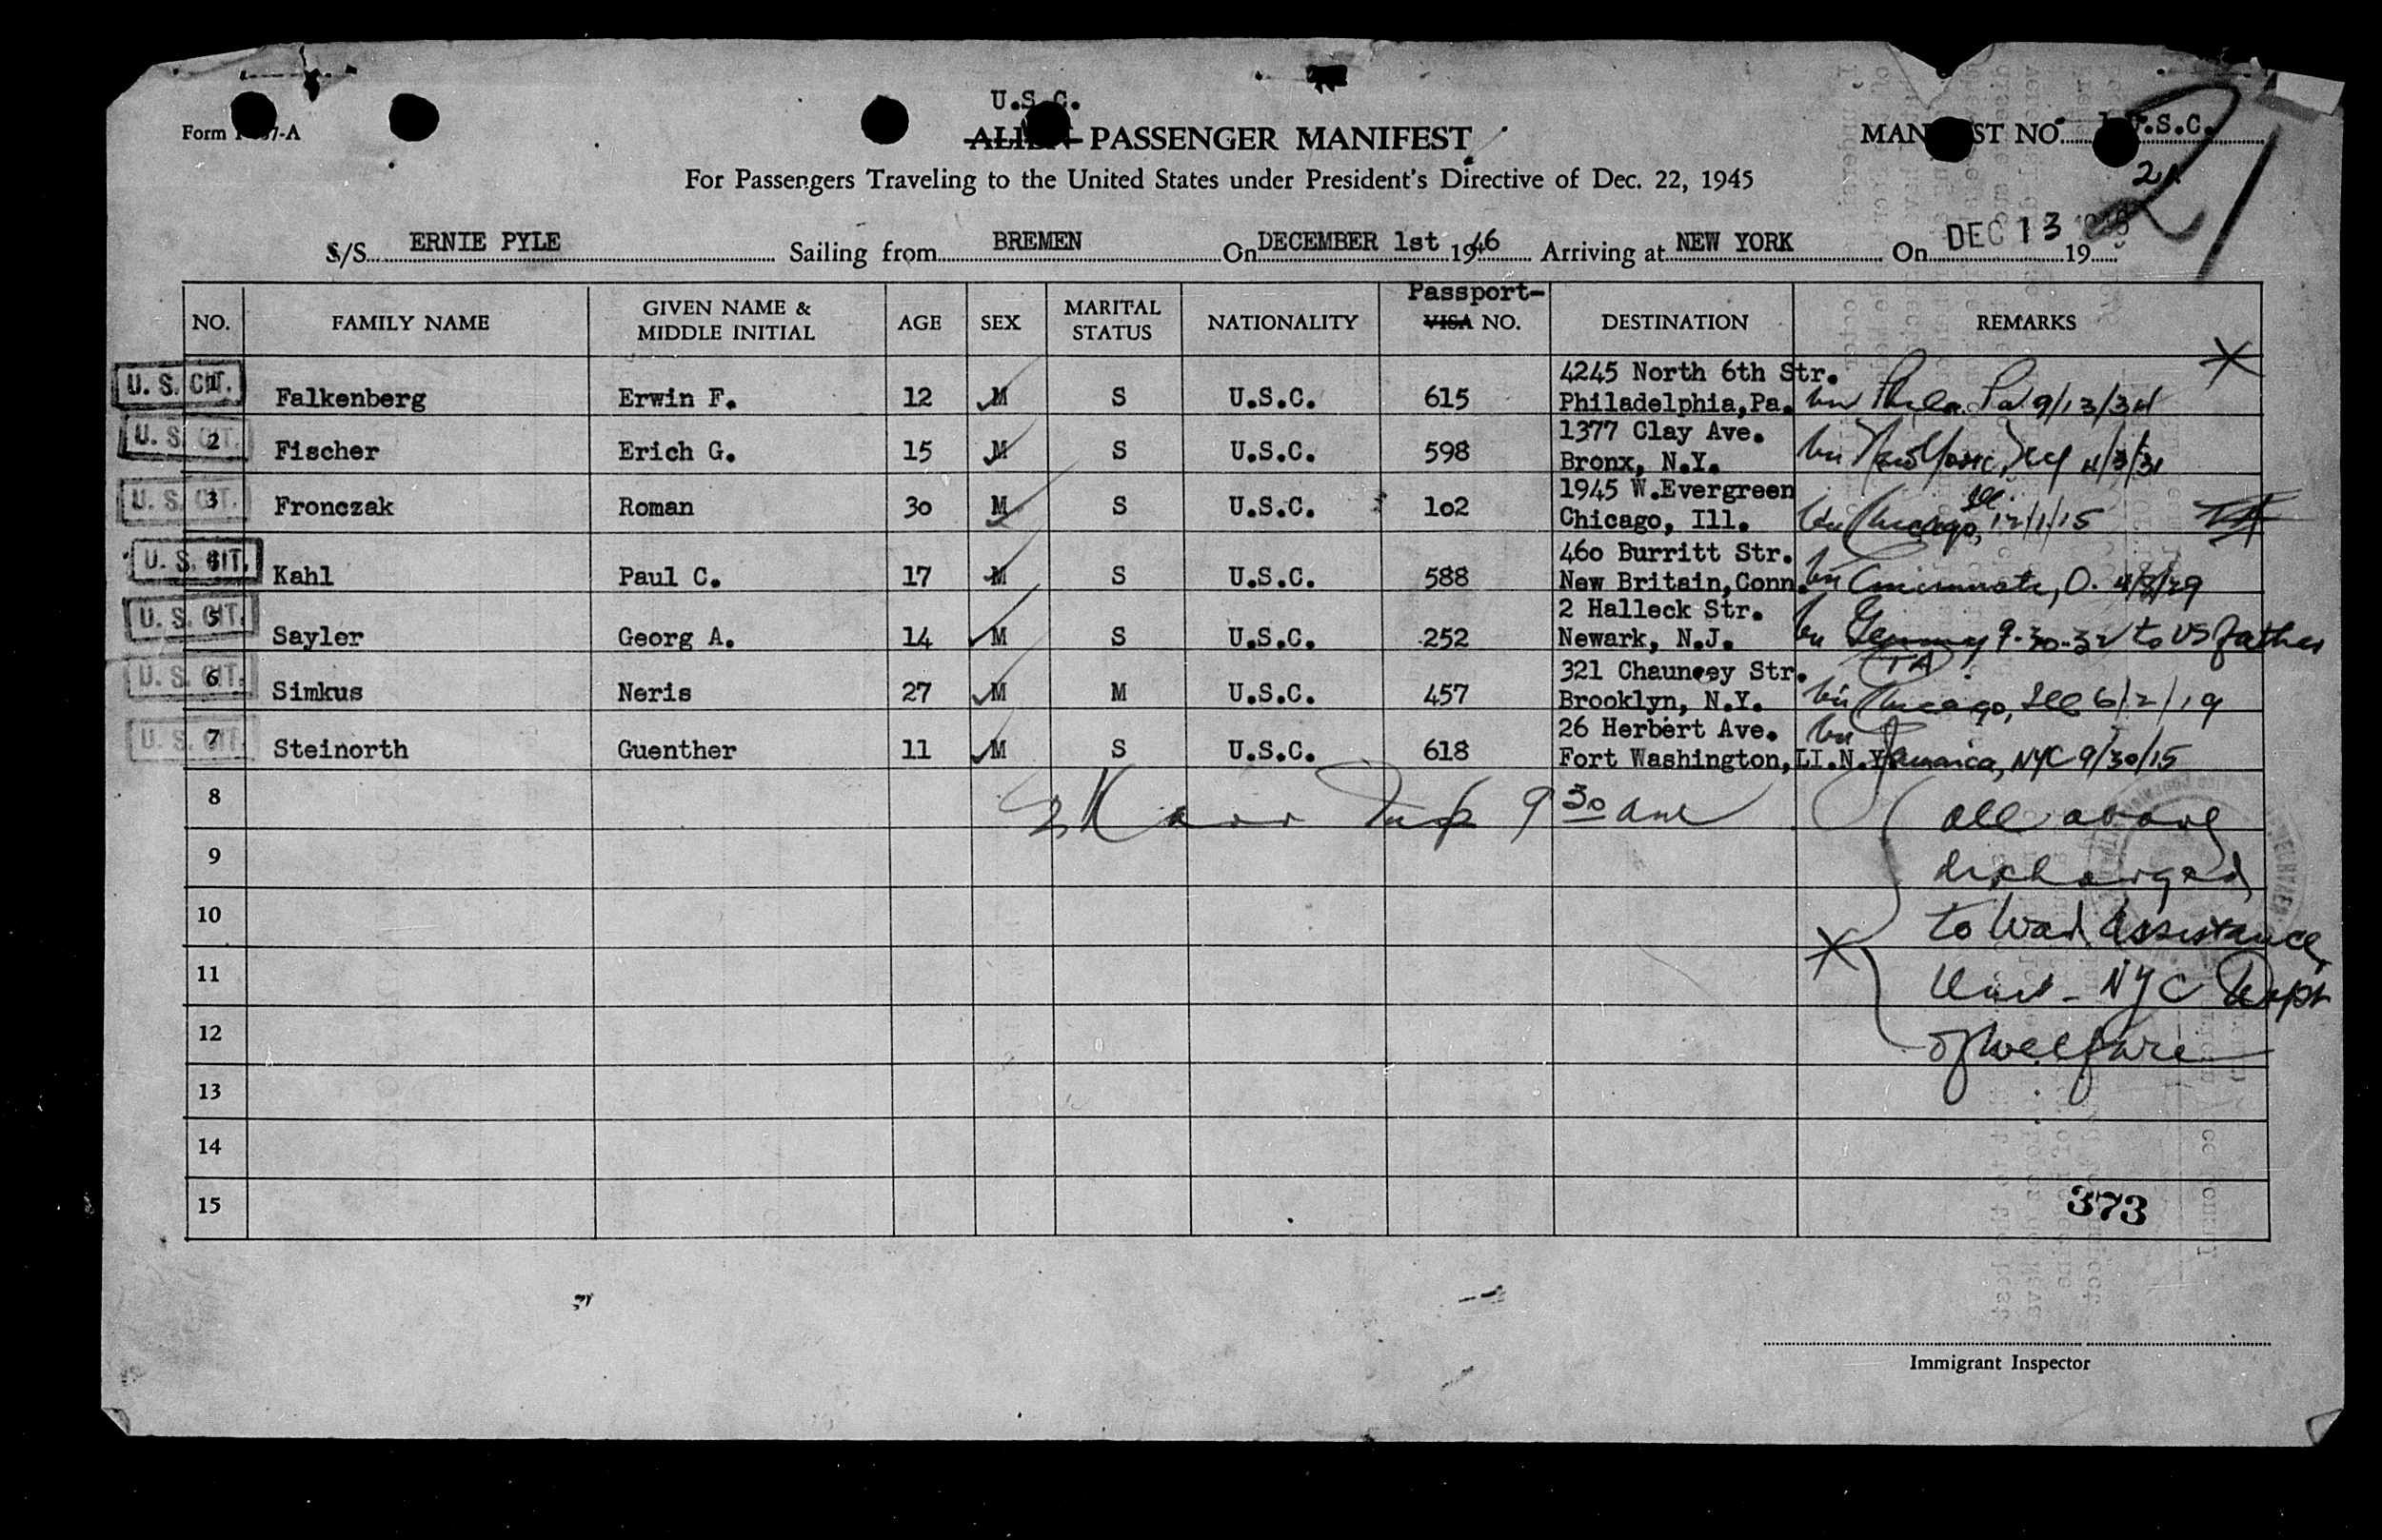 U.S.C.
Form
PASSENGER MANIFEST
For Passengers Traveling to the United States under President's Directive of Dec. 22, 1945
21
S/S. ERNIE PYLE Sailing from BREMEN On DECEMBER 1st 1946 Arriving at NEW YORK On DEC 13 19
NO. FAMILY NAME GIVEN NAME & MIDDLE INITIAL AGE SEX MARITAL STATUS NATIONALITY Passport- VISA NO. DESTINATION REMARKS
U. S. CIT. 1 Falkenberg Erwin F. 12 M S U.S.C. 615 4245 North 6th Str. Philadelphia, Pa. Phila. Pa. 9/13/34
U. S. CIT. 2 Fischer Erich G. 15 M S U.S.C. 598 1377 Clay Ave. Bronx, N.Y. New York, 4/3/31
U. S. CIT. 3 Fronczak Roman 30 M S U.S.C. 102 1945 W.Evergreen Chicago, Ill. Chicago, Ill 12/1/15
U. S. CIT. 4 Kahl Paul C. 17 M S U.S.C. 588 460 Burritt Str. New Britain, Conn. Cincinnati, O.
U. S. CIT. 5 Sayler Georg A. 14 M S U.S.C. 252 2 Halleck Str. Newark, N.J. Germany 9-30-32 to US father
U. S. CIT. 6 Simkus Neris 27 M M U.S.C. 457 321 Chauncey Str. Brooklyn, N.Y. TA Chicago, Ill 6/2/19
U. S. CIT. 7 Steinorth Guenther 11 M S U.S.C. 618 26 Herbert Ave. Fort Washington, LI.N.Y. Jamaica, NYC 9/30/15
8 9 30 am all above
9 discharged
10 to War Assistance
11 Unit - NYC Dept
12 of welfare
13
14
15 373
Immigrant Inspector